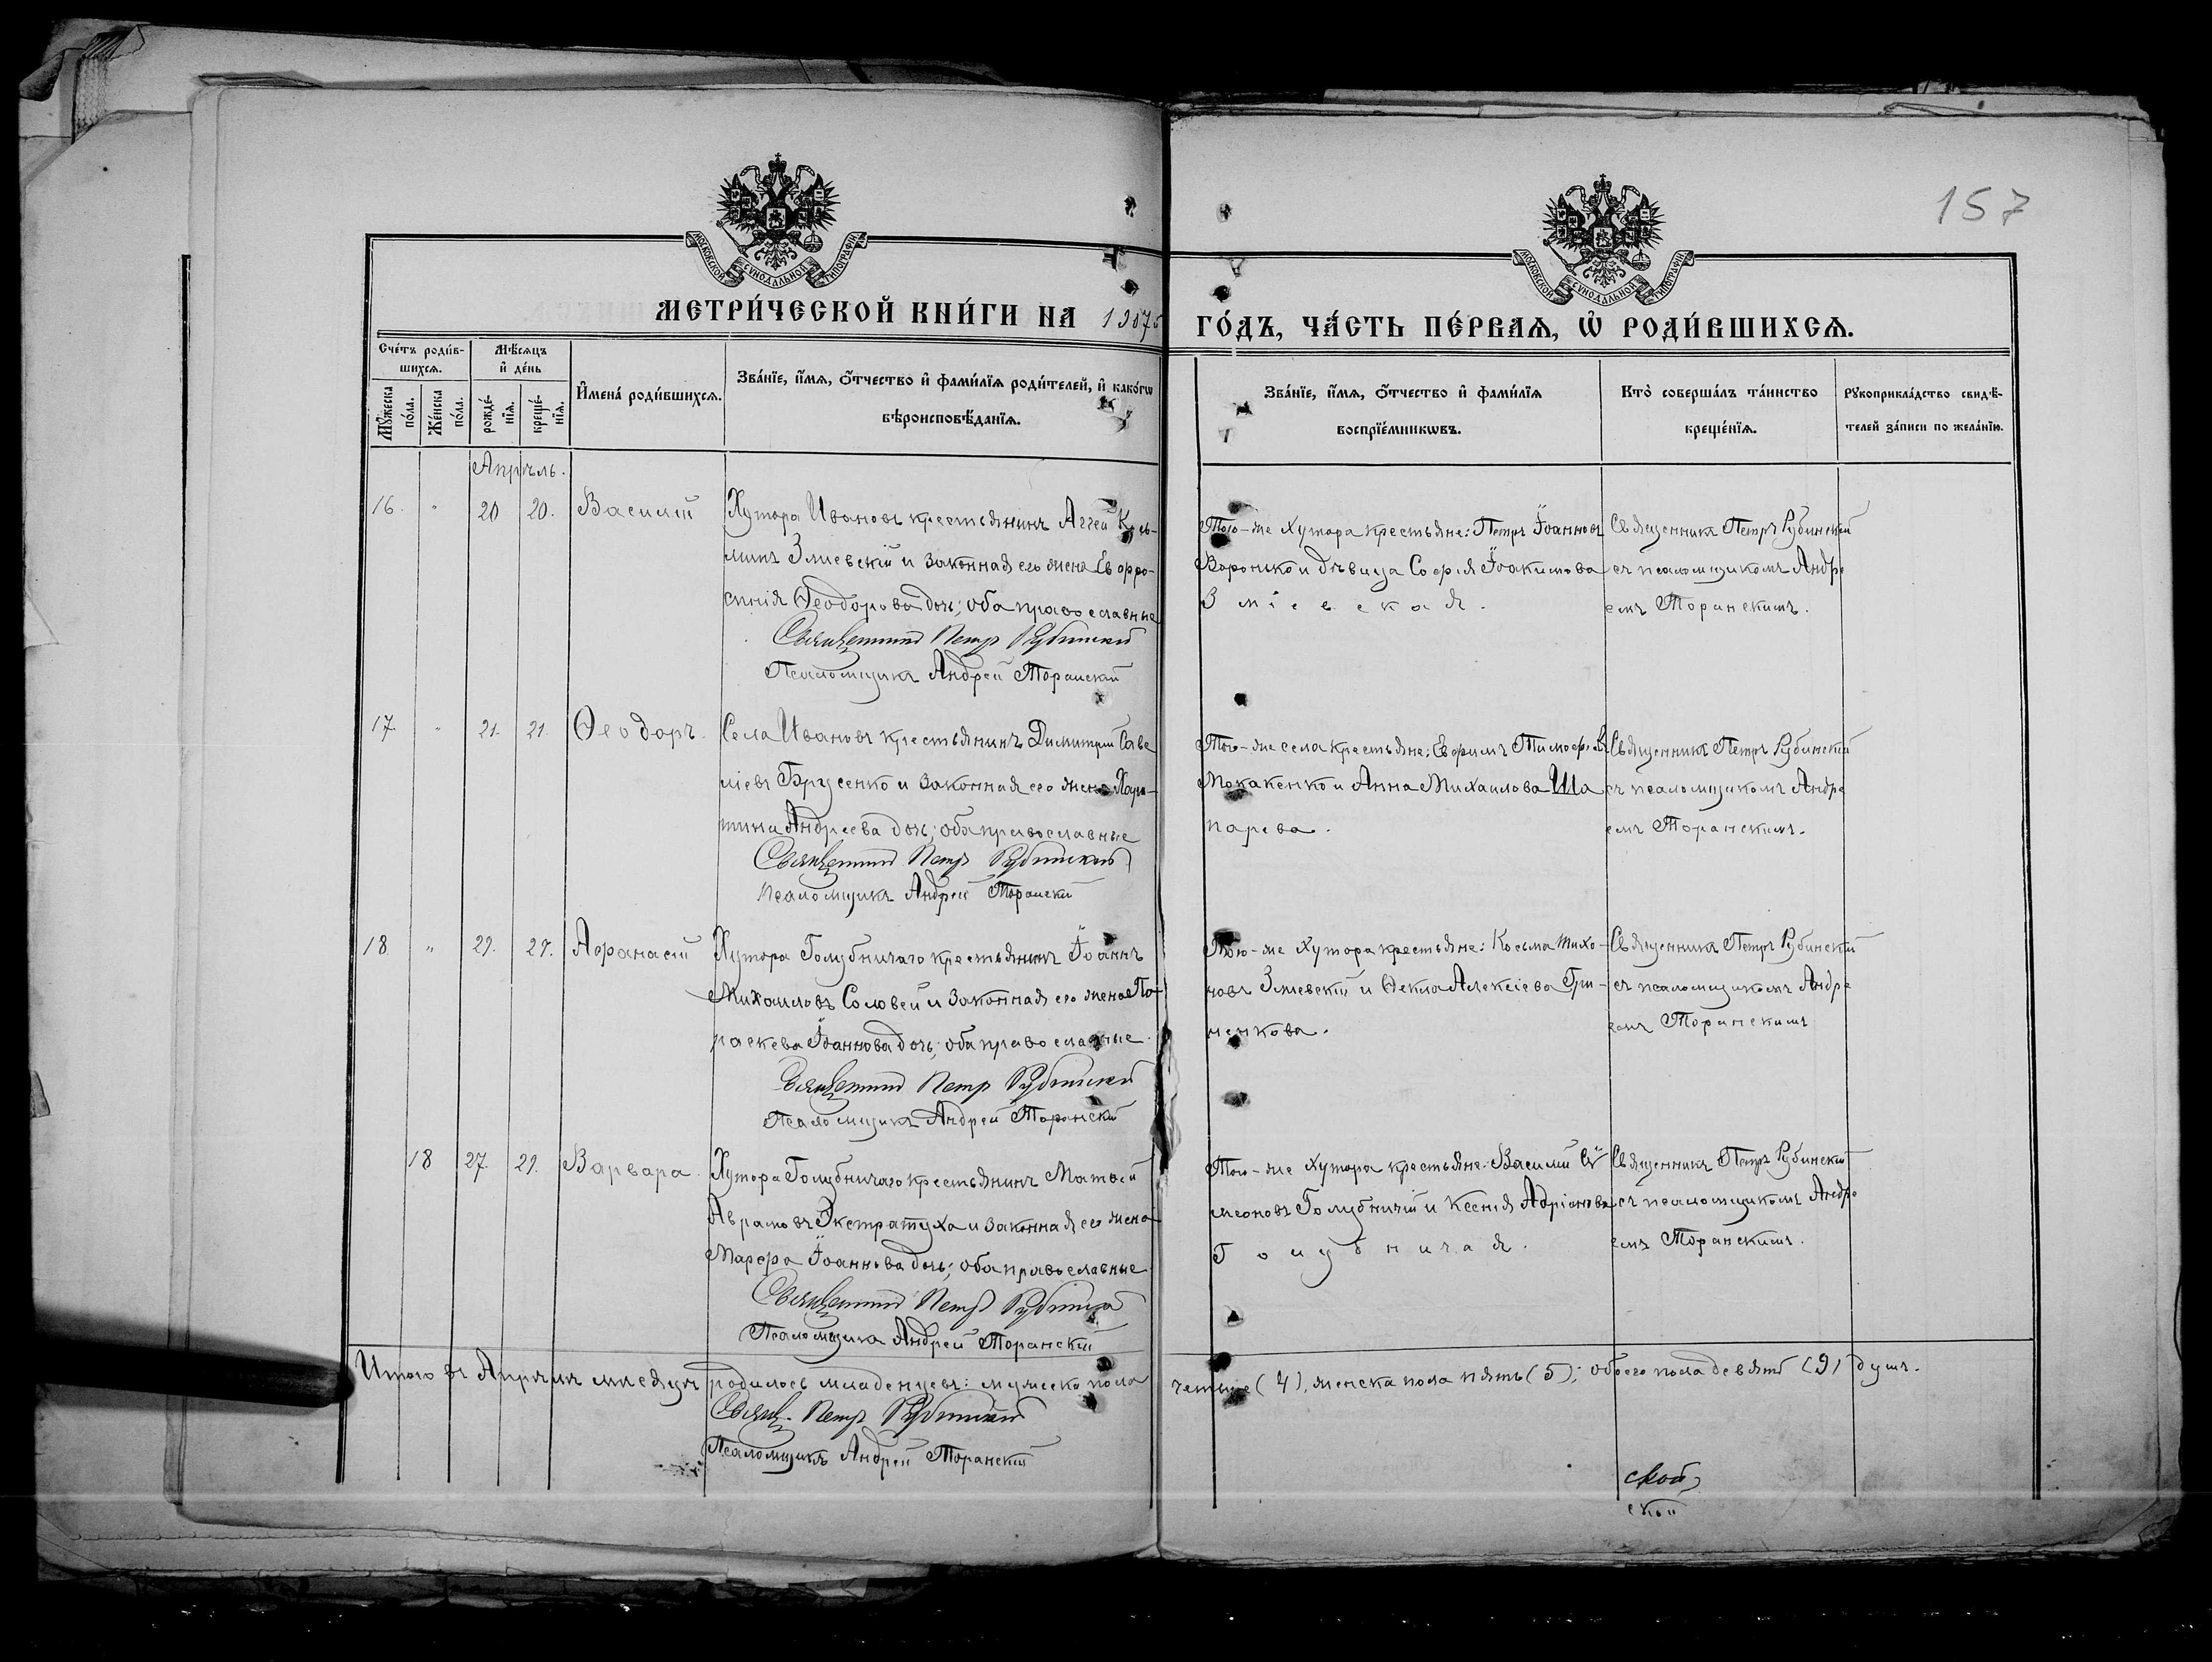 157
МОСКОВСКОЙ СУНОДАЛЬНОЙ ТИПОГРАФІИ
МОСКОВСКОЙ СУНОДАЛЬНОЙ ТИПОГРАФІИ
МЕТРИ́ЧЕСКОЙ КНИ́ГИ НА
ГО́ДЪ, ЧА́СТЬ ПЕ́РВАѦ, Ѡ҆ РОДИ́ВШИХСѦ.
Сче́тъ роди́в-
шихсѧ.
Мѣ́сѧцъ
и҆ де́нь
И҆мена̀ роди́вшихсѧ.
Зва́нїе, и҆́мѧ, ѻ҆́тчество и҆ фами́лїѧ роди́телей, и҆ како́гѡ
вѣроисповѣ́данїѧ.
Мꙋ́жеска
по́ла.
Же́нска
по́ла.
рожде́-
нїѧ.
креще́-
нїѧ.
Зва́нїе, и҆́мѧ, ѻ҆́тчество и҆ фами́лїѧ
воспрїе́мникѡвъ.
Кто̀ соверша́лъ та́инство
креще́нїѧ.
Рꙋкоприкла́дство свидѣ́-
телей за́писи по жела́нїю.
Апрѣль.
16. " 20 20. Василій
Хутора Ивановъ крестьянинъ Аггей Кось-
минъ Зміевскій и законная его жена Евфро-
синія Ѳеодорова дочь; оба православные
Священникъ Петръ Рубинскій
Псаломщикъ Андрей Торанскій
Того-же хутора крестьяне: Петръ Іоанновъ
Воронько и дѣвица Софія Іоакимова
Зміевская.
Священникъ Петръ Рубинскій
съ псаломщикомъ Андре
емъ Торанскимъ.
17. " 21. 21. Ѳеодоръ.
Села Ивановъ крестьянинъ Димитрій Саве
ліевъ Брусенко и законная его жена Хари-
тина Андреева дочь; оба православные
Священникъ Петръ Рубинскій
Псаломщикъ Андрей Торанскій
Того-же села крестьяне: Ефимъ
Мокакенко и Анна Михаилова Ша
парева.
Священникъ Петръ Рубинскій
съ псаломщикомъ Андре
емъ Торанскимъ.
18. " 29. 29. Афанасій
Хутора Голубничаго крестьянинъ Іоаннъ
Михаиловъ Соловей и законная его жена Па
раскева Іоаннова дочь; оба православные.
Священникъ Петръ Рубинскій
Псаломщикъ Андрей Торанскій
Того-же хутора крестьяне: Косьма Тихо-
новъ Зміевскій и Ѳекла Алексіева Гри-
ненкова.
Священникъ Петръ Рубинскій
съ псаломщикомъ Андре
емъ Торанскимъ
18 27. 29. Варвара.
Хутора Голубничаго крестьянинъ Матѳей
Аврамовъ и законная его жена
Марфа Іоаннова дочь; оба православные
Священникъ Петръ Рубинскій
Псаломщикъ Андрей Торанскій
Того-же хутора крестьяне: Василій Си
меоновъ Голубничій и Ксенія Адріанова
Голубничая.
Священникъ Петръ Рубинскій
съ псаломщикомъ Андре
емъ Торанскимъ.
Итого въ Апрѣлѣ мѣсяцѣ родилось младенцевъ: мужеска пола
четыре (4), женска пола пять (5); обоего пола девять (9) душъ.
Свящ. Петръ Рубинскій
Псаломщикъ Андрей Торанскій
ской
ской